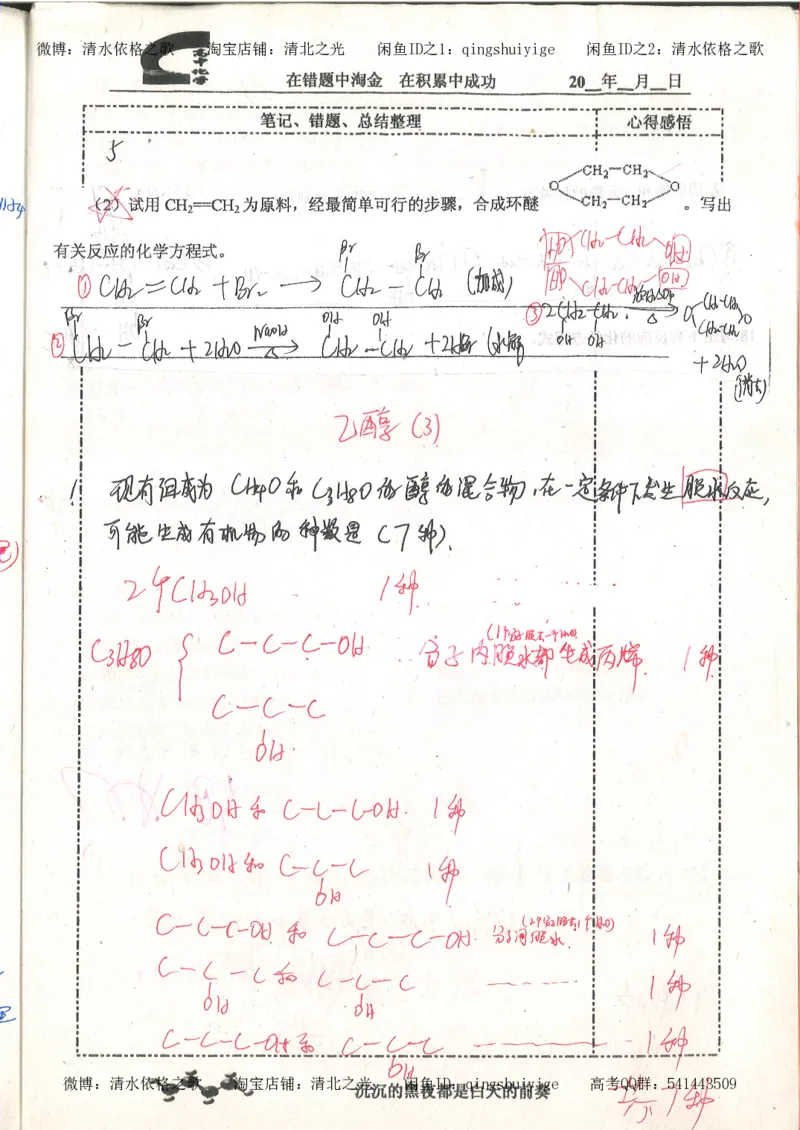 微博：清水依格之歌 淘宝店铺：清北之光 闲鱼ID之1：qingshuiyige 闲鱼ID之2：清水依格之歌
高中化学
在错题中淘金 在积累中成功 20__年__月__日
笔记、错题、总结整理 心得感悟
5
CH₂—CH₂
O O
CH₂—CH₂
（2）试用 CH₂==CH₂ 为原料，经最简单可行的步骤，合成环醚 。写出
有关反应的化学方程式。
HO CH₂-CH₂ OH
HO CH₂-CH₂ OH
Br Br
① CH₂=CH₂ + Br₂ → CH₂-CH₂ (加成)
③ 2CH₂-CH₂ 浓H₂SO₄ △ → O CH₂-CH₂ CH₂-CH₂ O
OH OH
+ 2H₂O
(消去)
Br Br NaOH OH OH
② CH₂-CH₂ + 2H₂O → △ CH₂-CH₂ + 2HBr (水解
乙醇 (3)
1 现有组成为 CH₄O 和 C₃H₈O 的醇的混合物，在一定条件下发生脱水反应，
可能生成有机物的种数是 (7种).
2个CH₃OH 1种.
C₃H₈O { C-C-C-OH 分子内脱水都生成丙烯. 1种
C-C-C
OH
CH₃OH 和 C-C-C-OH. 1种
CH₃OH 和 C-C-C 1种
OH
C-C-C-OH 和 C-C-C-OH. 分子间脱水. 1种
C-C-C 和 C-C-C 1种
OH OH
C-C-C-OH 和 C-C-C 1种
OH
微博：清水依格之歌 淘宝店铺：清北之光 闲鱼ID：qingshuiyige 高考QQ群：541443509
沉沉的黑夜都是白天的前奏